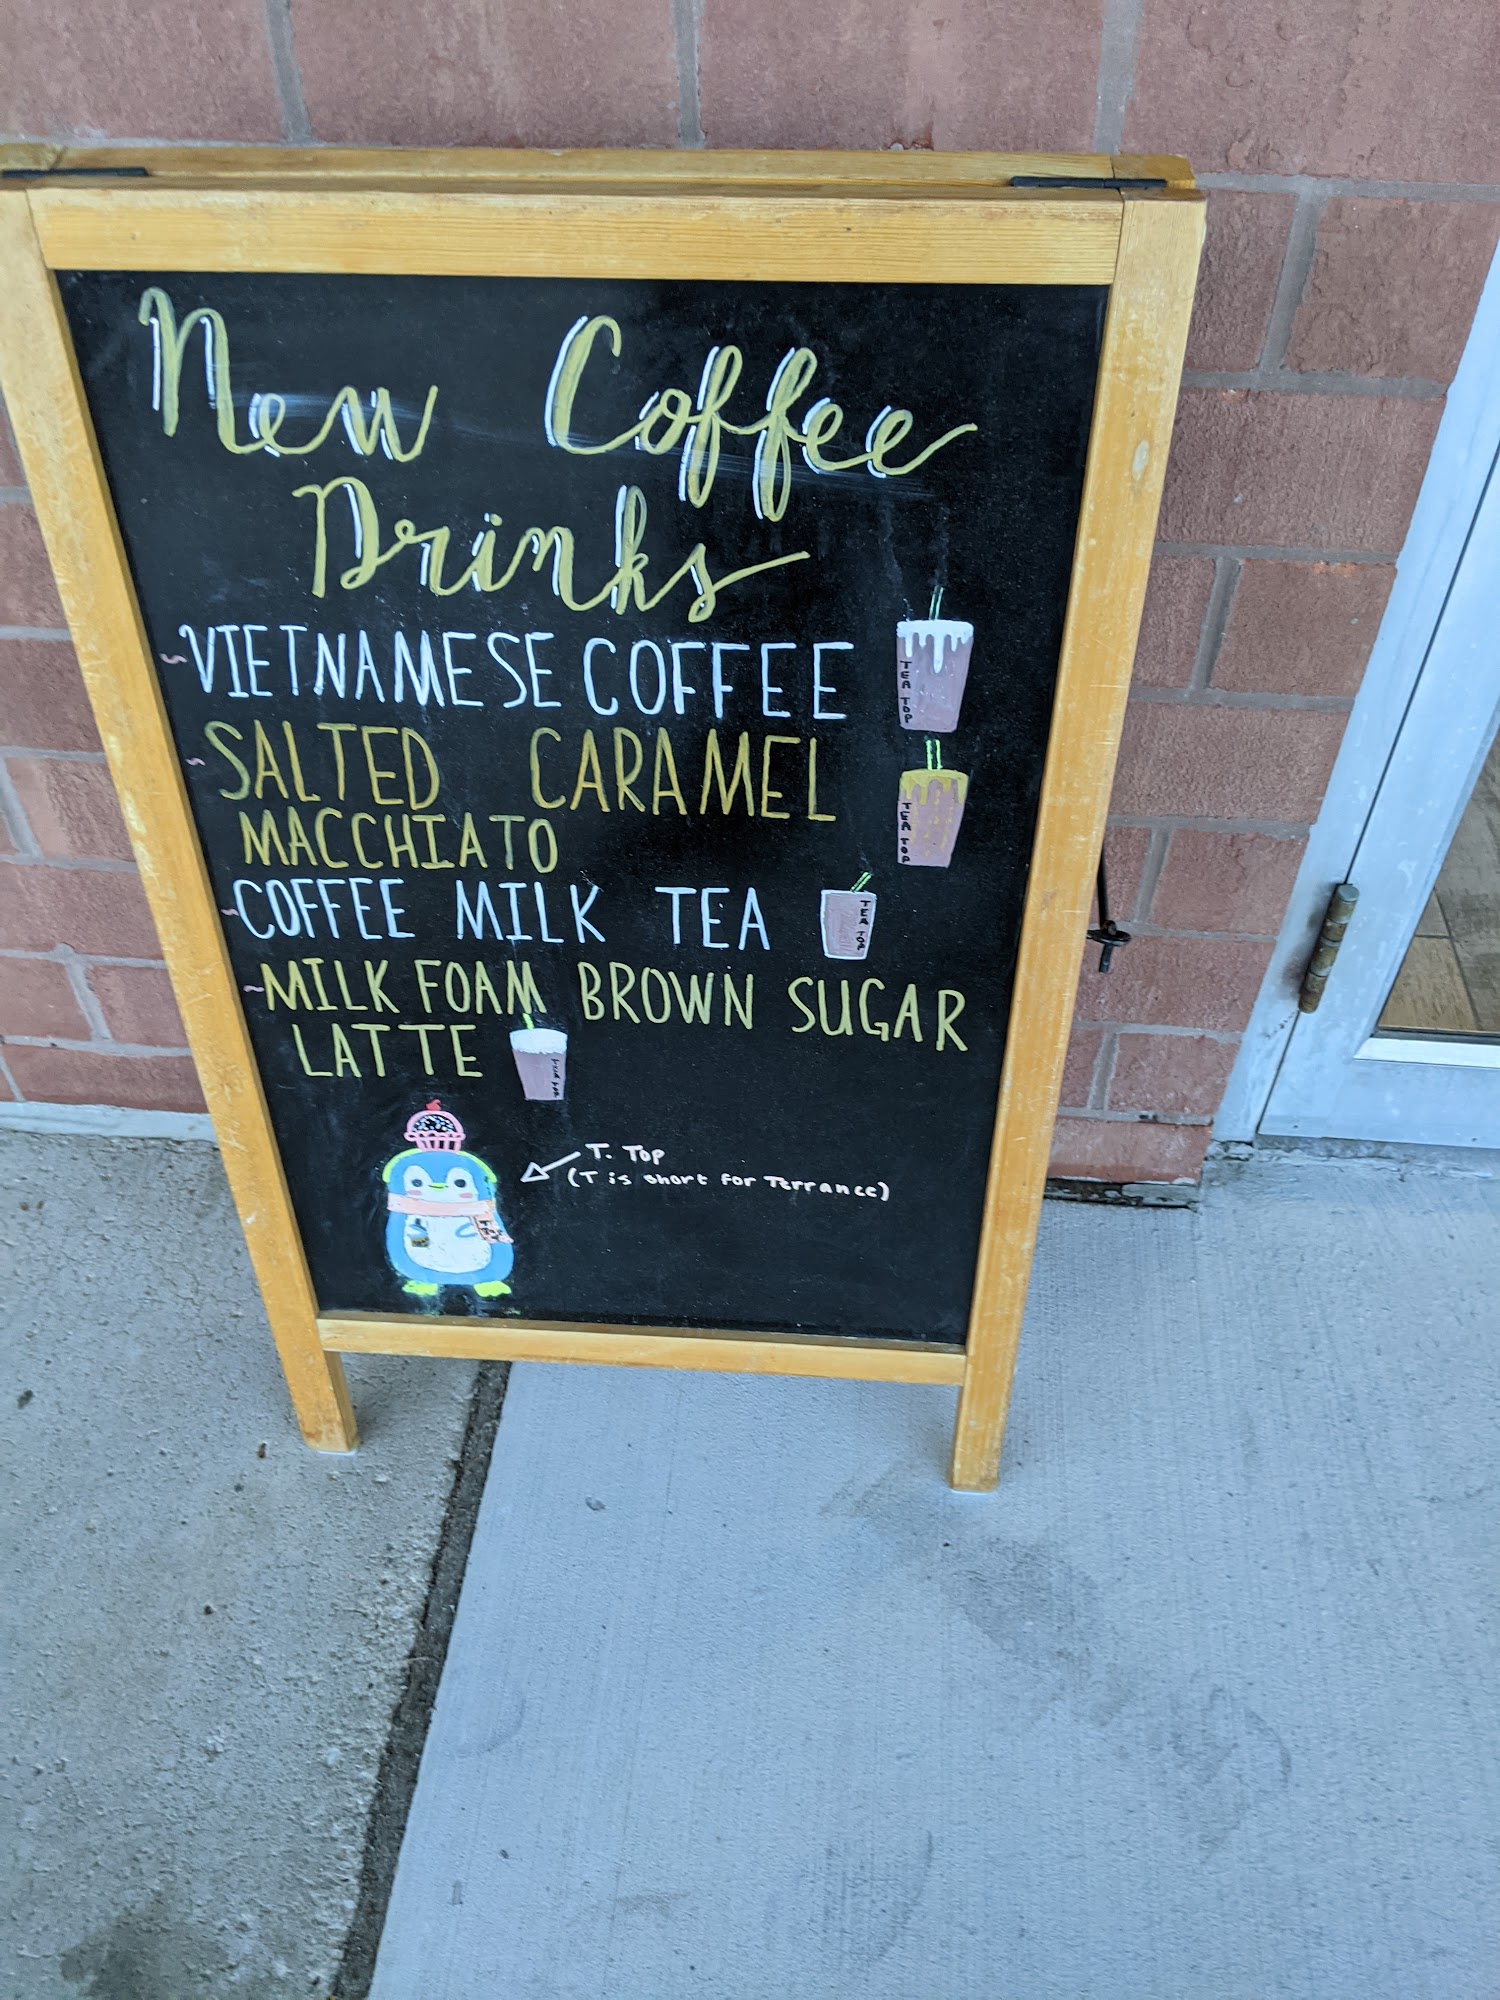 New Coffee
Drinks
~VIETNAMESE COFFEE
TEA TOP
~SALTED CARAMEL
MACCHIATO
TEA TOP
~COFFEE MILK TEA
TEA TOP
~MILK FOAM BROWN SUGAR
LATTE
T. TOP
(T is short for Terrance)